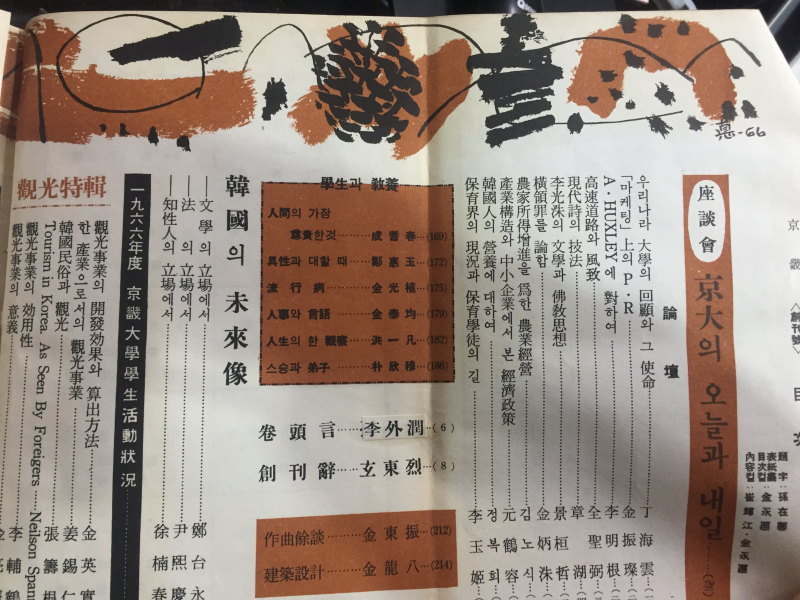 京畿 〈創刊號〉 目次
題字·孫在馨
表紙畵·金永
目次컽·金永
內容컽·崔輝江·金永
座談會 京大의 오늘과 내일
論壇
우리나라 大學의 回顧와 그 使命 丁海雲
「마케팅」上의 P·R 金振璨
A·HUXLEY에 對하여 李明根
高速道路와 風致 全聖弼
現代詩의 技法 章湖
李光洙의 文學과 佛敎思想 景桓哲
橫領罪를 論함 金炳洙
農家所得增進을 爲한 農業經營 김노식
產業構造와 中小企業에서 본 經濟政策 元鶴容
韓國人의 營養에 대하여 정복희
保育界의 現況과 保育學徒의 길 李玉姬
學生과 敎養
人間의 가장
尊貴한것 成耆春 (169)
異性과 대할 때 鄭惠玉 (172)
流行病 金光植 (175)
人事와 言語 金泰均 (179)
人生의 한 觀察 洪一凡 (182)
스승과 弟子 朴欣穆 (186)
卷頭言 李外潤 (6)
創刊辭 玄東烈 (8)
作曲餘談 金東振 (212)
建築設計 金龍八 (214)
韓國의 未來像
―文學의 立場에서 鄭台永
―法의 立場에서 尹熙慶
―知性人의 立場에서 徐楠春
一九六六年度 京畿大學學生活動狀況
觀光特輯
觀光事業의 開發效果와 算出方法 金英實
한 產業으로서의 觀光事業 姜錫仁
韓國民俗과 觀光 張籌根
Tourism in Korea, As Seen By Foreigers Neilson Span
觀光事業의 効用性 李輔鶴
觀光事業의 意義 金
-66